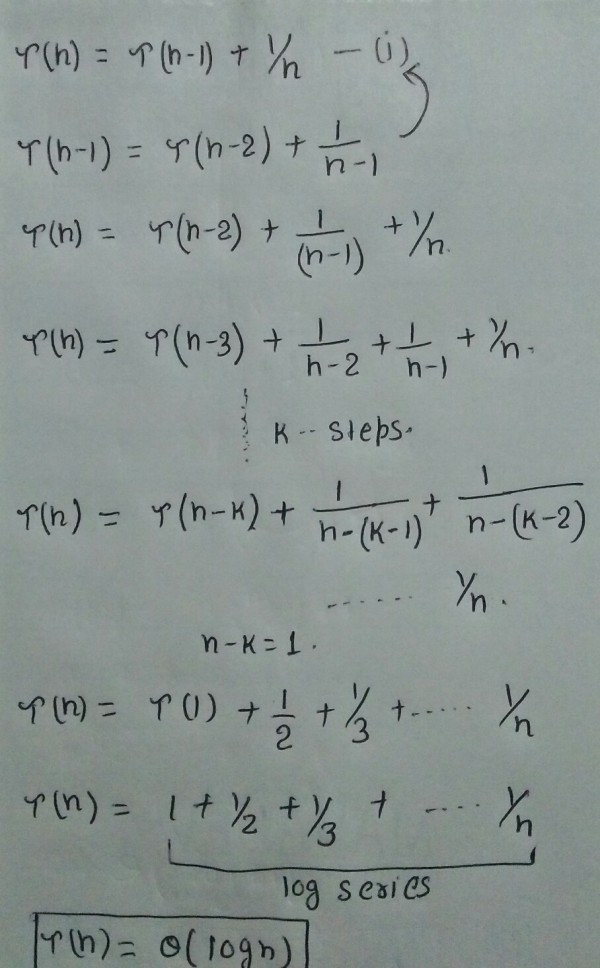 T(n) = T(n-1) + 1/n - (i)
T(n-1) = T(n-2) + 1/n-1
T(n) = T(n-2) + 1/(n-1) + 1/n.
T(n) = T(n-3) + 1/n-2 + 1/n-1 + 1/n.
K -- steps.
T(n) = T(n-K) + 1/n-(K-1) + 1/n-(K-2)
....... 1/n.
n-K = 1.
T(n) = T(1) + 1/2 + 1/3 + ...... 1/n
T(n) = 1 + 1/2 + 1/3 + .... 1/n
log series
T(n) = O(logn)